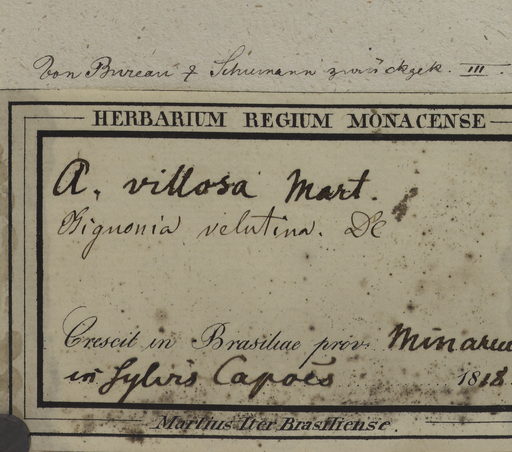 Von Bureau & Schumann zurückgek. III.
HERBARIUM REGIUM MONACENSE
A. villosa Mart.
Bignonia velutina. DC
Crescit in Brasiliae prov. Minarum
in sylvis Capoës 1818.
Martius Iter Brasiliense.